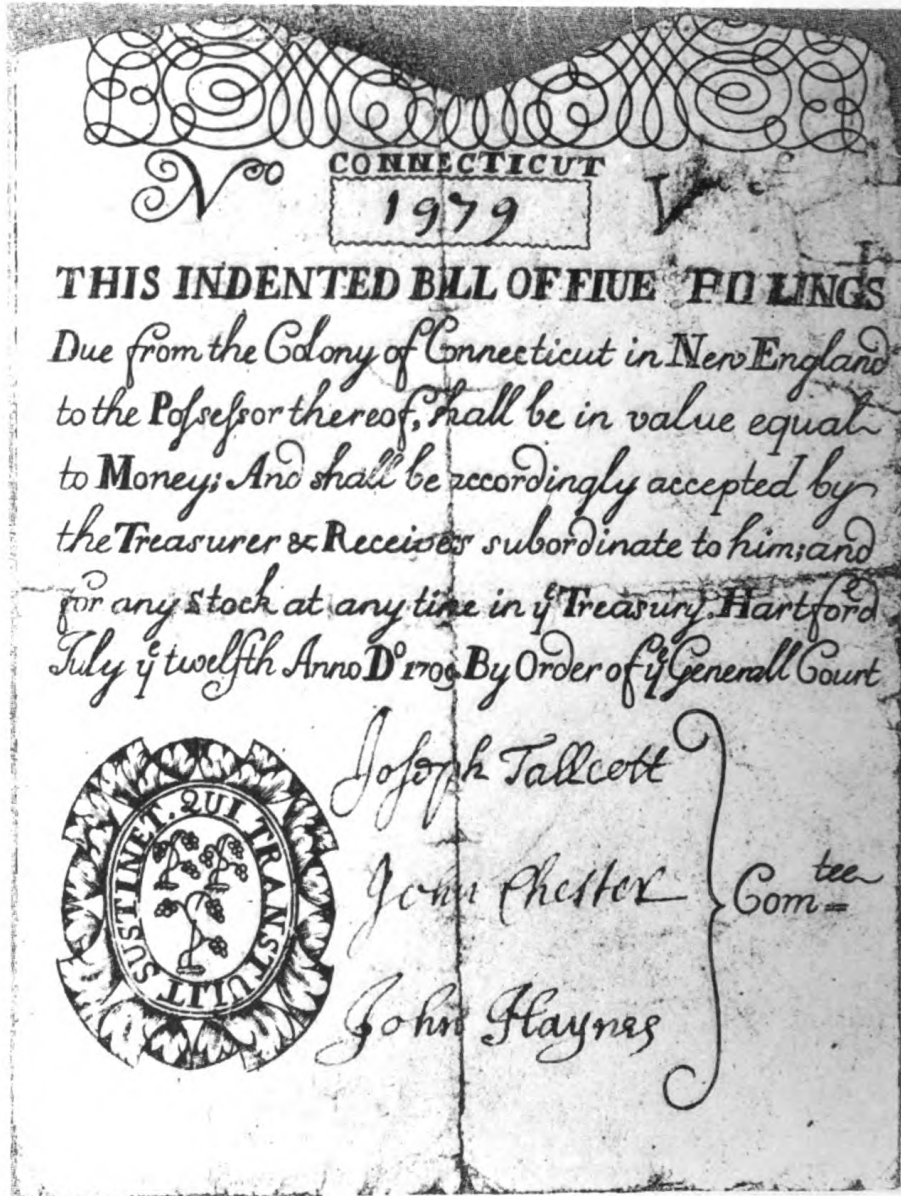 CONNECTICUT
No 1979 V
THIS INDENTED BILL OF FIUE
Due from the Colony of Connecticut in New England
to the Poſseſsor thereof, shall be in value equal
to Money; And shall be accordingly accepted by
the Treasurer & Receivers subordinate to him; and
for any Stock at any time in yᵉ Treasury. Hartford
July yᵉ twelfth Anno Dº 1709 By Order of yᵉ Generall Court
Joſeph Tallcott
John Chester
John Haynes
Comᵗᵉᵉ=
SUSTINET. QUI TRANSTULIT